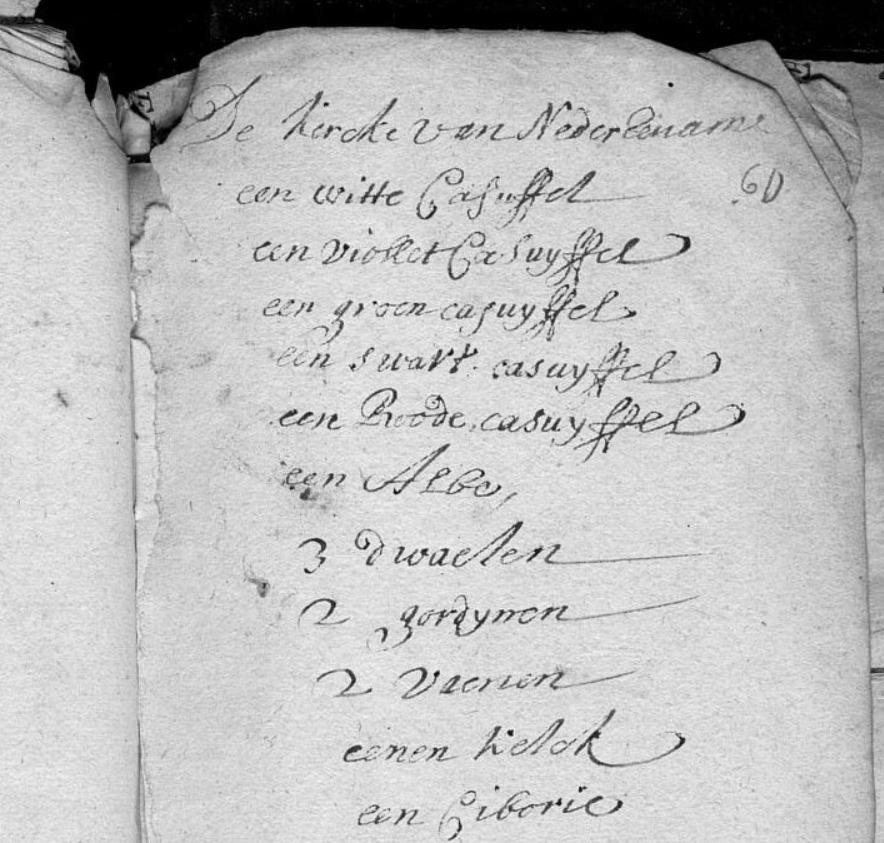 De kercke van Nedereename
60
een witte Casuffel
een viollet Casuyffel
een groen casuyffel
een swart casuyffel
een Roode casuyffel
een Albe,
3 dwaelen
2 gordynen
2 vaenen
eenen kelck
een Ciborie